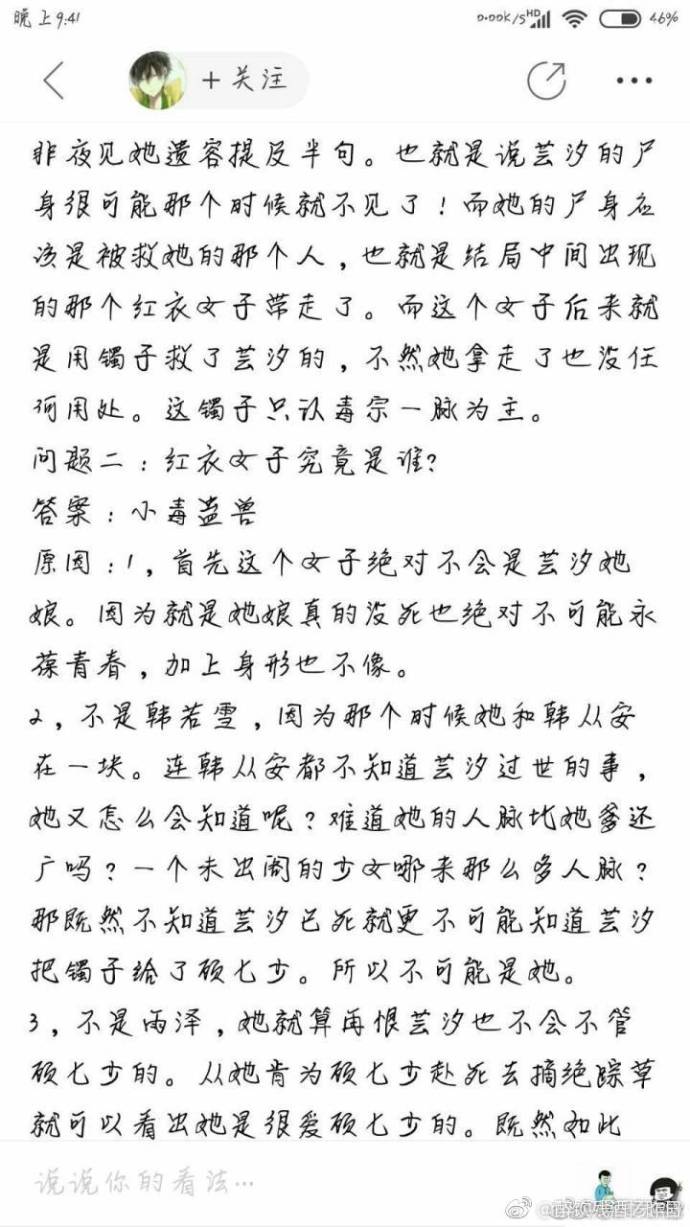 晚上9:41
0.00K/S HD 46%
+关注
非夜见她遗容提及半句。也就是说芸汐的尸
身很可能那个时候就不见了!而她的尸身应
该是被救她的那个人,也就是结局中间出现
的那个红衣女子带走了。而这个女子后来就
是用镯子救了芸汐的,不然她拿走了也没任
何用处。这镯子只认毒宗一脉为主。
问题二:红衣女子究竟是谁?
答案:小毒蛊兽
原因:1,首先这个女子绝对不会是芸汐她
娘。因为就是她娘真的没死也绝对不可能永
葆青春,加上身形也不像。
2,不是韩若雪,因为那个时候她和韩从安
在一块。连韩从安都不知道芸汐过世的事,
她又怎么会知道呢?难道她的人脉比她爹还
广吗?一个未出阁的少女哪来那么多人脉?
那既然不知道芸汐已死就更不可能知道芸汐
把镯子给了顾七少。所以不可能是她。
3,不是雨泽,她就算再恨芸汐也不会不管
顾七少的。从她肯为顾七少赴死去摘绝踪草
就可以看出她是很爱顾七少的。既然如此
说说你的看法…